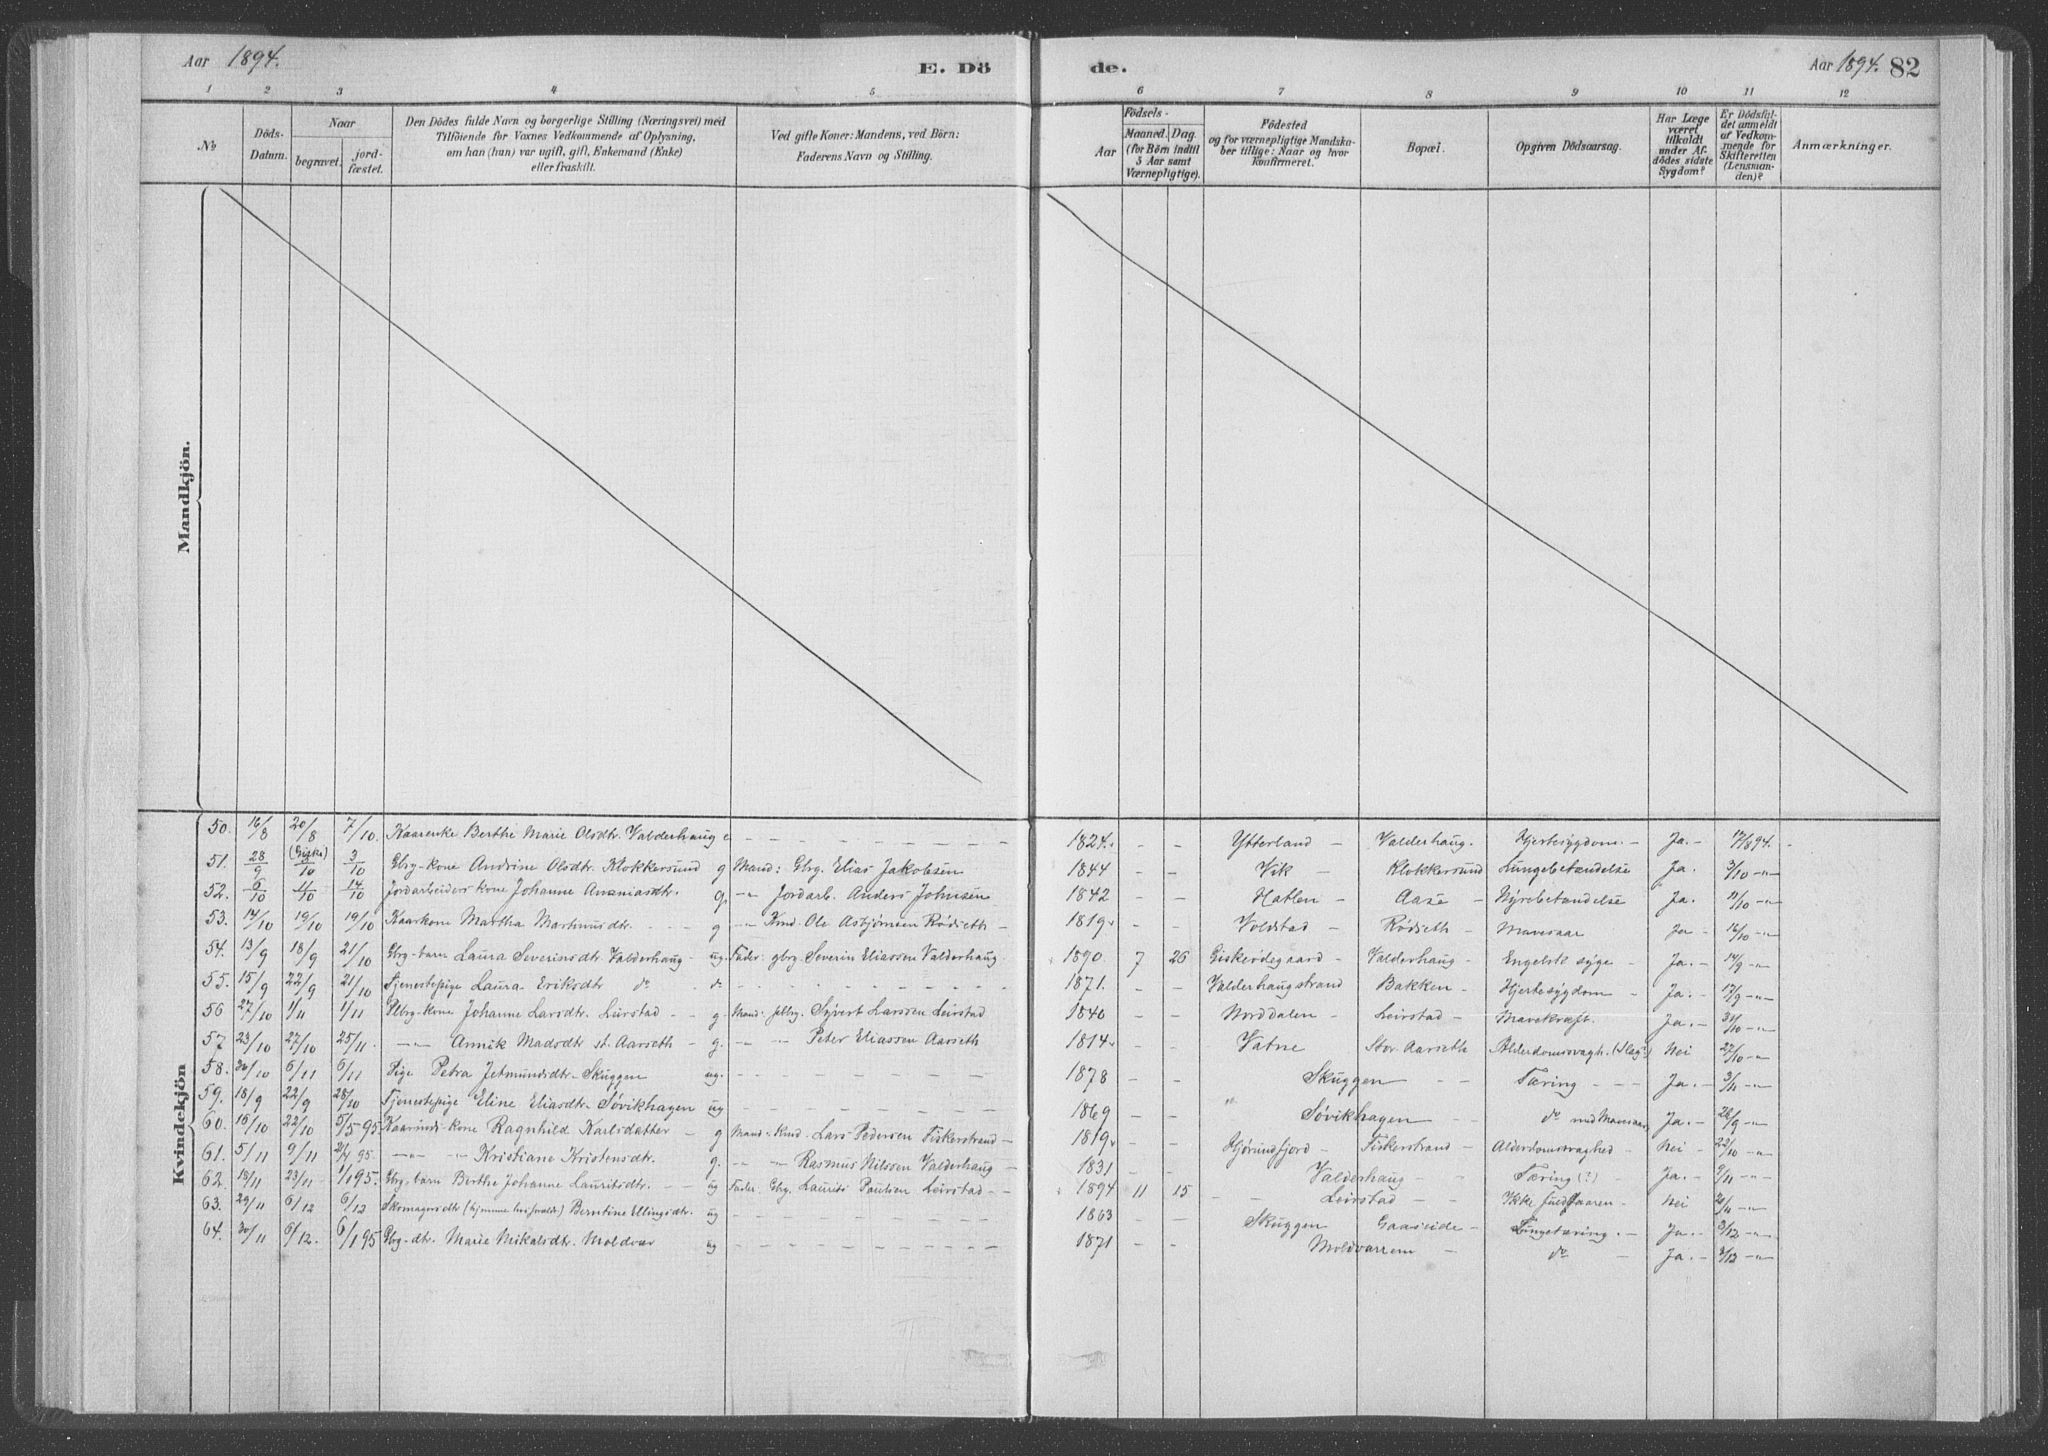 Aar 1894. E. Dö de. Aar 1894. 82
1 2 3 4 5 6 7 8 9 10 11 12
No
Döds-Datum.
Naar
begravet. jord-fæstet.
Den Dödes fulde Navn og borgerlige Stilling (Næringsvei) med
Tilföiende for Voxnes Vedkommende af Oplysning,
om han (hun) var ugift, gift, Enkemand (Enke)
eller fraskilt.
Ved gifte Koner: Mandens, ved Börn:
Faderens Navn og Stilling.
Födsels-
Aar
Maaned. Dag.
(for Börn indtil
5 Aar samt
Værnepligtige).
Födested
og for værnepligtige Mandska-
ber tillige: Naar og hvor
Konfirmeret.
Bopæl.
Opgiven Dödsaarsag.
Har Læge
været
tilkaldt
under Af-
dödes sidste
Sygdom?
Er Dödsfal-
det anmeldt
af Vedkom-
mende for
Skifteretten
(Lensman-
den)?
Anmærkninger.
Mandkjön.
Kvindekjön
50. 16/8 20/8 7/10. Kaarenke Berthe Marie Olsdtr. Valderhaug e – – 1824. – – Ytterland – Valderhaug. Hjertesygdom. – Ja. – 17/894. –
51. 28/9 (Giske) /10 3/10 Gbrg-kone Andrine Olsdtr. Klokkersund g Mand: Gbrg. Elias Jakobsen 1844 – – Vik – Klokkersund Lungebetændelse Ja. 3/10 –"–
52. 6/10 11/10 14/10 Jordarbeiders kone Johanne Ananiasdtr. g. –"– Jordarb. Anders Johnsen 1842 – – Hatlen – Aase – Nyrebetændelse Ja. 11/10 –"–
53. 14/10 19/10 19/10 Kaarkone Martha Markusdtr. – – – g –"– Kmd. Ole Asbjørnsen Rødseth – 1819. – – Voldstad – Rødseth – Mavesaar Ja – 16/10 –"–
54. 13/9 18/9 21/10 Gbrg-barn Laura Severinsdtr. Valderhaug – ug. Fader: gbrg. Severin Eliassen Valderhaug 1890 7 26 Giskeødegaard – Valderhaug – Engelsk syge – Ja. – 14/9 –"–
55. 15/9 22/9 21/10 Tjenestepige Laura Eriksdtr do do – – 1871. – – Valderhaugstrand Bakken – Hjertesygdom – Ja – 17/9 –"–
56 27/10 1/11 1/11 Plbrg-kone Johanne Larsdtr. Leirstad – – g. Mand: Syvert Larssen Leirstad 1840 – – Norddalen – Leirstad – Mavekræft. Ja. – 31/10 –"–
57 23/10 27/10 25/11. –"– Annik Madsdtr. st. Aarseth – g. – " – Peter Eliassen Aarseth 1814. – – Vatne Stor Aarseth Nei 27/10 –"–
58. 30/10 6/11 6/11 Pige Petra Jetmundsdtr. Skuggen ug. – – 1878 – – Skuggen – – Tæring – – – Ja. – 3/11 –"–
59. 18/9 22/9 28/10 Tjenestepige Eline Eliasdtr. Søvikhagen ug – – 1869 – – Søvikhagen – do med Mavesaar Ja. – 26/9 –"–
60. 16/10 22/10 5/5 95 Kaarinds kone Ragnhild Karlsdatter – g Mand: Kmd. Lars Pedersen Fiskerstrand – 1819. – – Hjørundfjord – Fiskerstrand – Alderdomssvaghed – Nei – 22/10 –"–
61. 5/11 9/11 95. –"– –"– Kristiane Kristensdtr. g. – – " – Rasmus Nilssen Valderhaug – 1831 – – Valderhaug – – Tæring (?) – Ja. – 9/11 –"–
62. 18/11 23/11 1/1 95. Gbrg-barn Berthe Johanne Lauritsdtr. – – – ug Fader: Gbrg. Laurits Paulsen Leirstad – – 1894 11 15 – – Leirstad – – Ikke Nei – /11 –"–
63. 29/11 6/12 6/12 Skomagersdtr Berntine Ellingsdtr. ug – – 1863 – – Skuggen Gaaseide – Lungetæring. – Ja. – 3/12 –"–
64. 30/11 6/12. 6/1 95 Gbrg-dtr. Marie Mikalsdtr. Moldvær ug – – 1871 – – Moldværrem – do – Ja. – 4/12 –"–